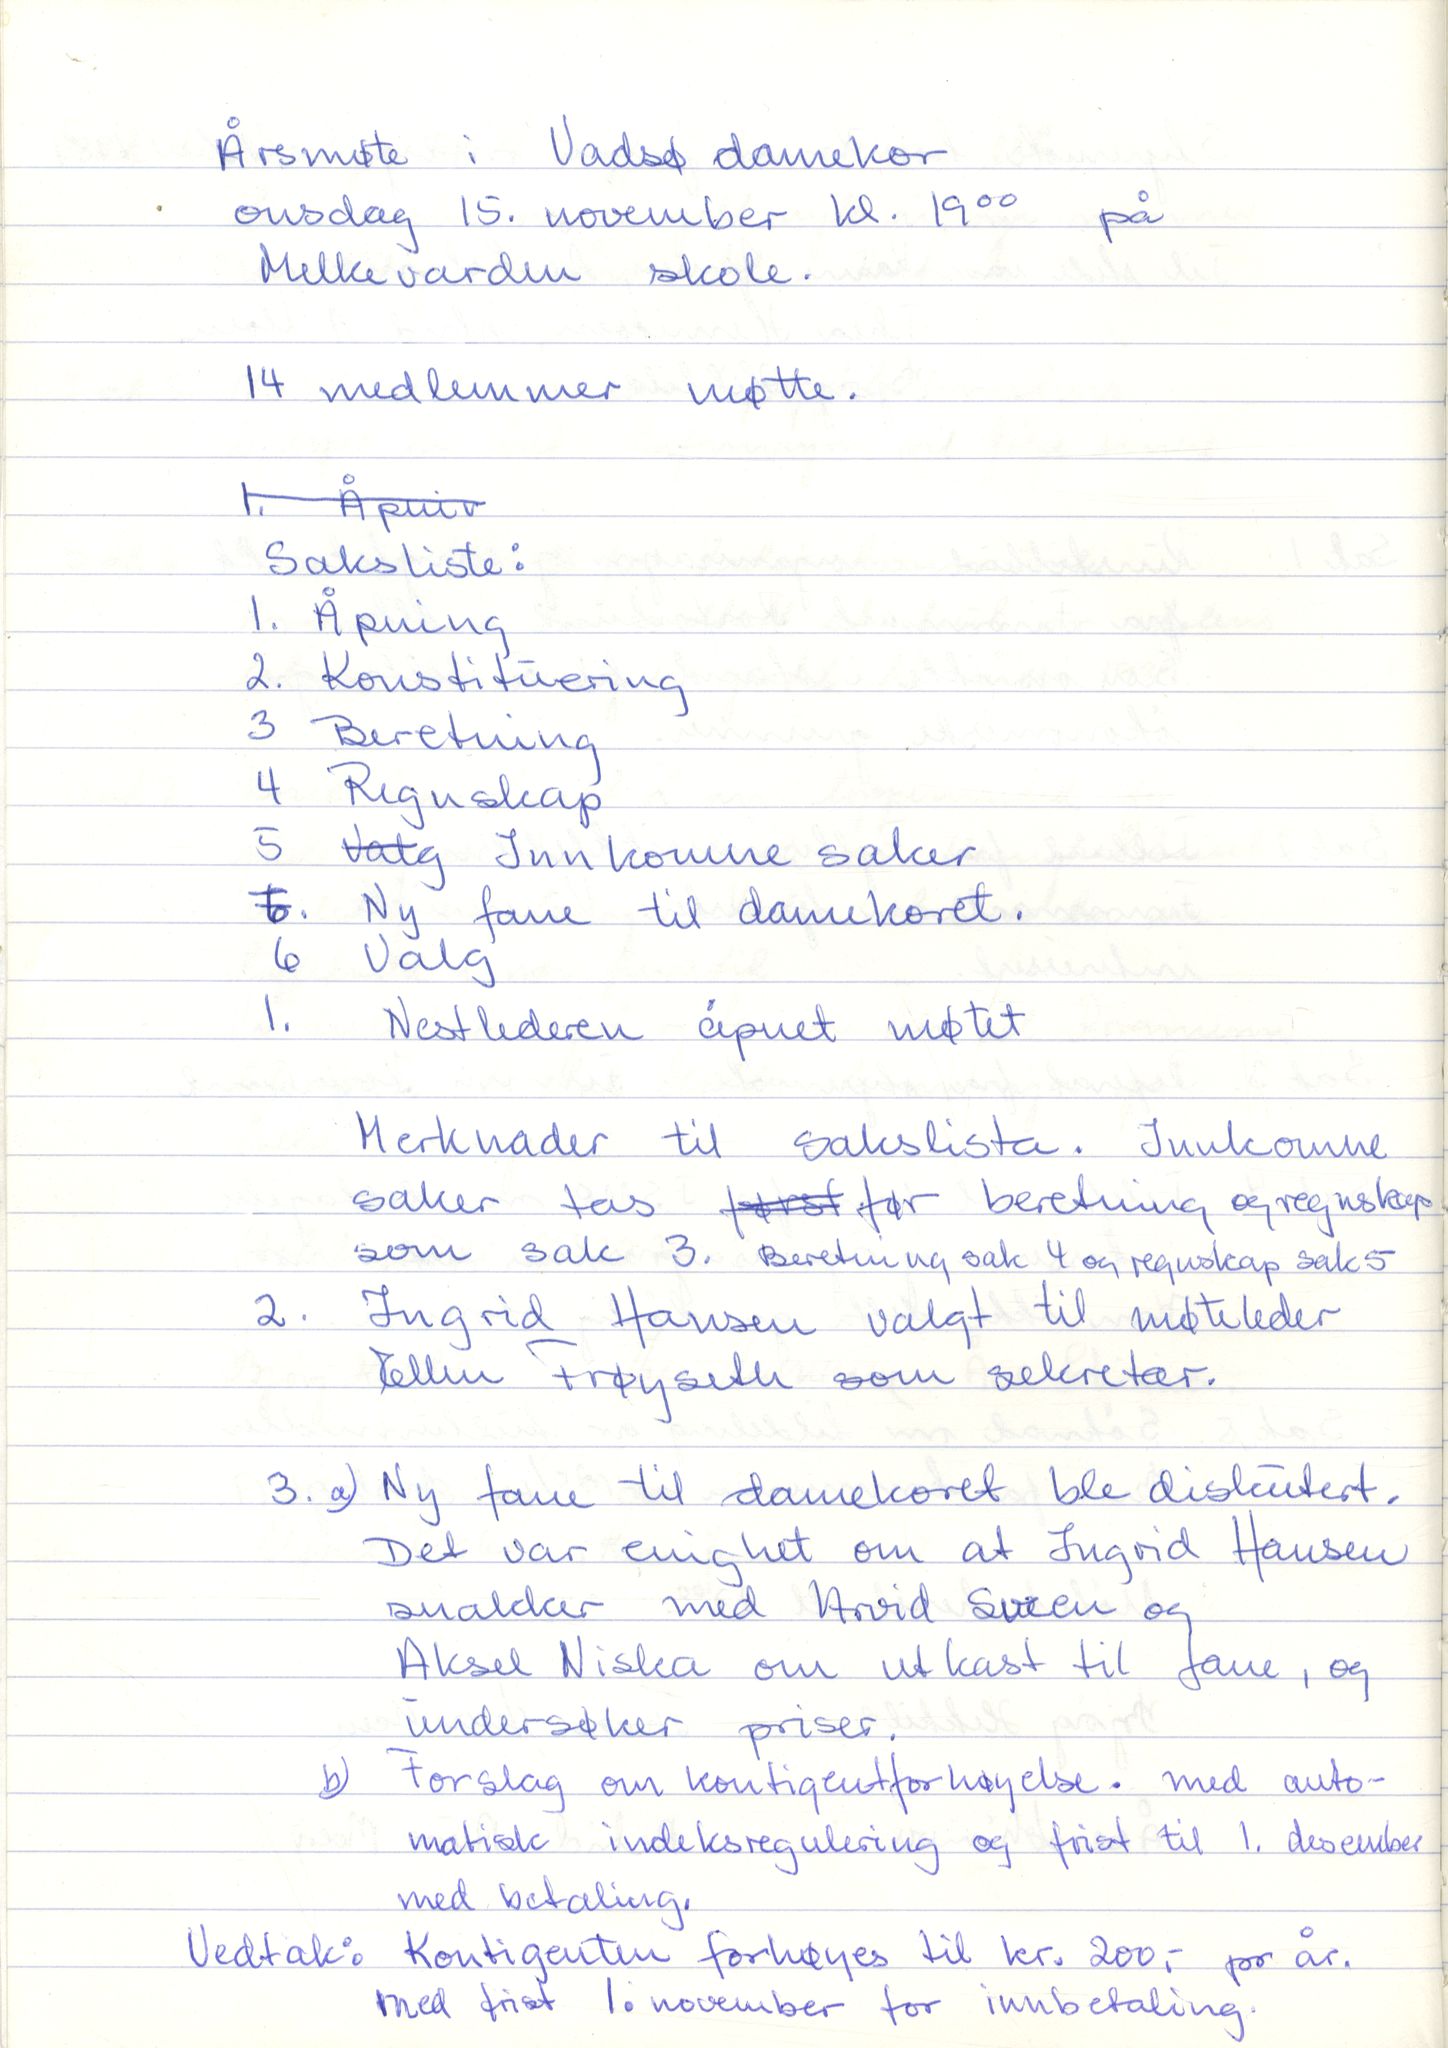 Årsmøte i Vadsø damekor
onsdag 15. november kl. 19⁰⁰ på
Melkevarden skole.
14 medlemmer møtte.
1. Åpnir
Saksliste:
1. Åpning
2. Konstituering
3 Beretning
4 Regnskap
5 Valg Innkomne saker
6. Ny fane til damekoret.
6 Valg
1. Nestlederen åpnet møtet
Merknader til sakslista. Innkomne
saker tas først før beretning og regnskap
som sak 3. Beretning sak 4 og regnskap sak 5
2. Ingrid Hansen valgt til møteleder
Ellin Frøyseth som sekretær.
3. a) Ny fane til damekoret ble diskutert.
Det var enighet om at Ingrid Hansen
snakker med Arvid Sveen og
Aksel Niska om utkast til fane, og
undersøker priser.
b) Forslag om kontigentforhøyelse. med auto-
matisk indeksregulering og frist til 1. desember
med betaling.
Vedtak: Kontigenten forhøyes til kr. 200,- pr år.
med frist 1. november for innbetaling.